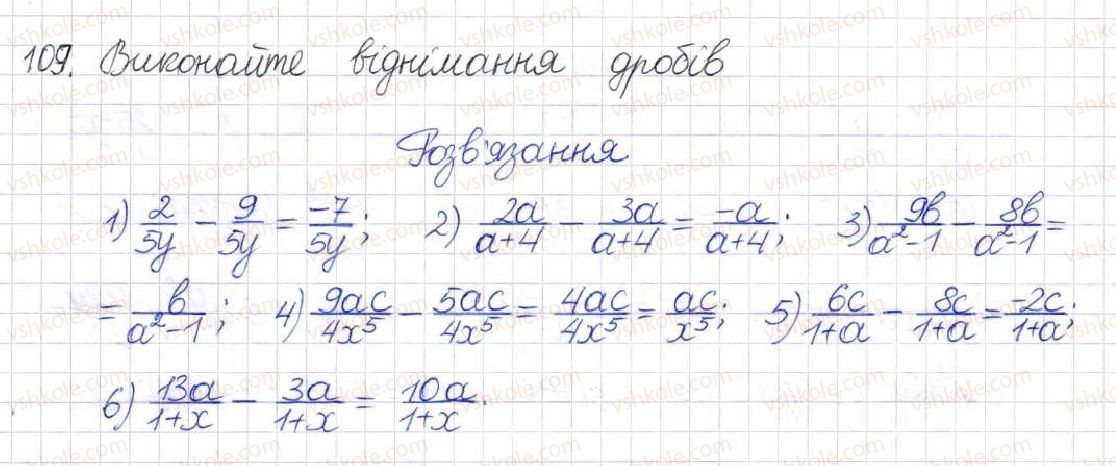 109. Виконайте віднімання дробів
Розв'язання
1) 2/5y − 9/5y = −7/5y; 2) 2a/a+4 − 3a/a+4 = −a/a+4; 3) 9b/a²−1 − 8b/a²−1 =
= b/a²−1; 4) 9ac/4x⁵ − 5ac/4x⁵ = 4ac/4x⁵ = ac/x⁵; 5) 6c/1+a − 8c/1+a = −2c/1+a;
6) 13a/1+x − 3a/1+x = 10a/1+x.